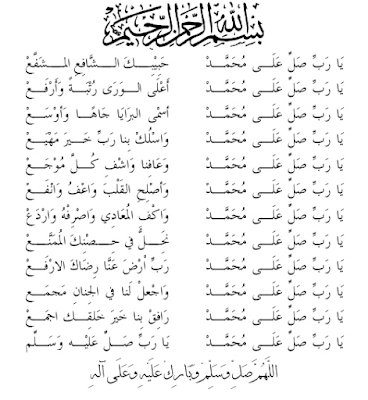 بِسْمِ اللهِ الرَّحْمٰنِ الرَّحِيْمِ
يَا رَبِّ صَلِّ عَلَـى مُحَمَّـدْ حَبِيْبِـكَ الـشَّافِعِ المـشَفَّعْ
يَا رَبِّ صَلِّ عَلَـى مُحَمَّـدْ أَعْلَى الـوَرَى رُتْبَـةً وَأَرْفَـعْ
يَا رَبِّ صَلِّ عَلَـى مُحَمَّـدْ أسْمَى البَرَايَا جَاهًـا وَأَوْسَـعْ
يَا رَبِّ صَلِّ عَلَـى مُحَمَّـدْ وَاسْلُكْ بِنا رَبِّ خَـيرَ مَهْيَـعْ
يَا رَبِّ صَلِّ عَلَـى مُحَمَّـدْ وَعَافِنا وَاشْفِ كُـلَّ مُوْجَـعْ
يَا رَبِّ صَلِّ عَلَـى مُحَمَّـدْ وَأَصْلِحِ القَلْبَ وَاعْفُ وَانْفَعْ
يَا رَبِّ صَلِّ عَلَـى مُحَمَّـدْ وَاكْفِ المُعَادِي وَاصْرِفْهُ وَارْدَعْ
يَا رَبِّ صَلِّ عَلَـى مُحَمَّـدْ نَحلُّ في حِـصْنِكَ المُمَنَّـعْ
يَا رَبِّ صَلِّ عَلَـى مُحَمَّـدْ رَبِّ أرْضَ عَنَّا رِضَاكَ الارْفَعْ
يَا رَبِّ صَلِّ عَلَـى مُحَمَّـدْ وَاجْعَلْ لَنا في الجِنانِ مَجمَعْ
يَا رَبِّ صَلِّ عَلَـى مُحَمَّـدْ رَافِقْ بِنا خَيرَ خَلقِـك اجمَعْ
يَا رَبِّ صَلِّ عَلَـى مُحَمَّـدْ يَا رَبِّ صَلِّ عَلَيْـهِ وَسَـلِّمْ
اللّٰهُمَّ صَلِّ وَسَلِّمْ وَبَارِكْ عَلَيْهِ وَعَلَى آلِهِ